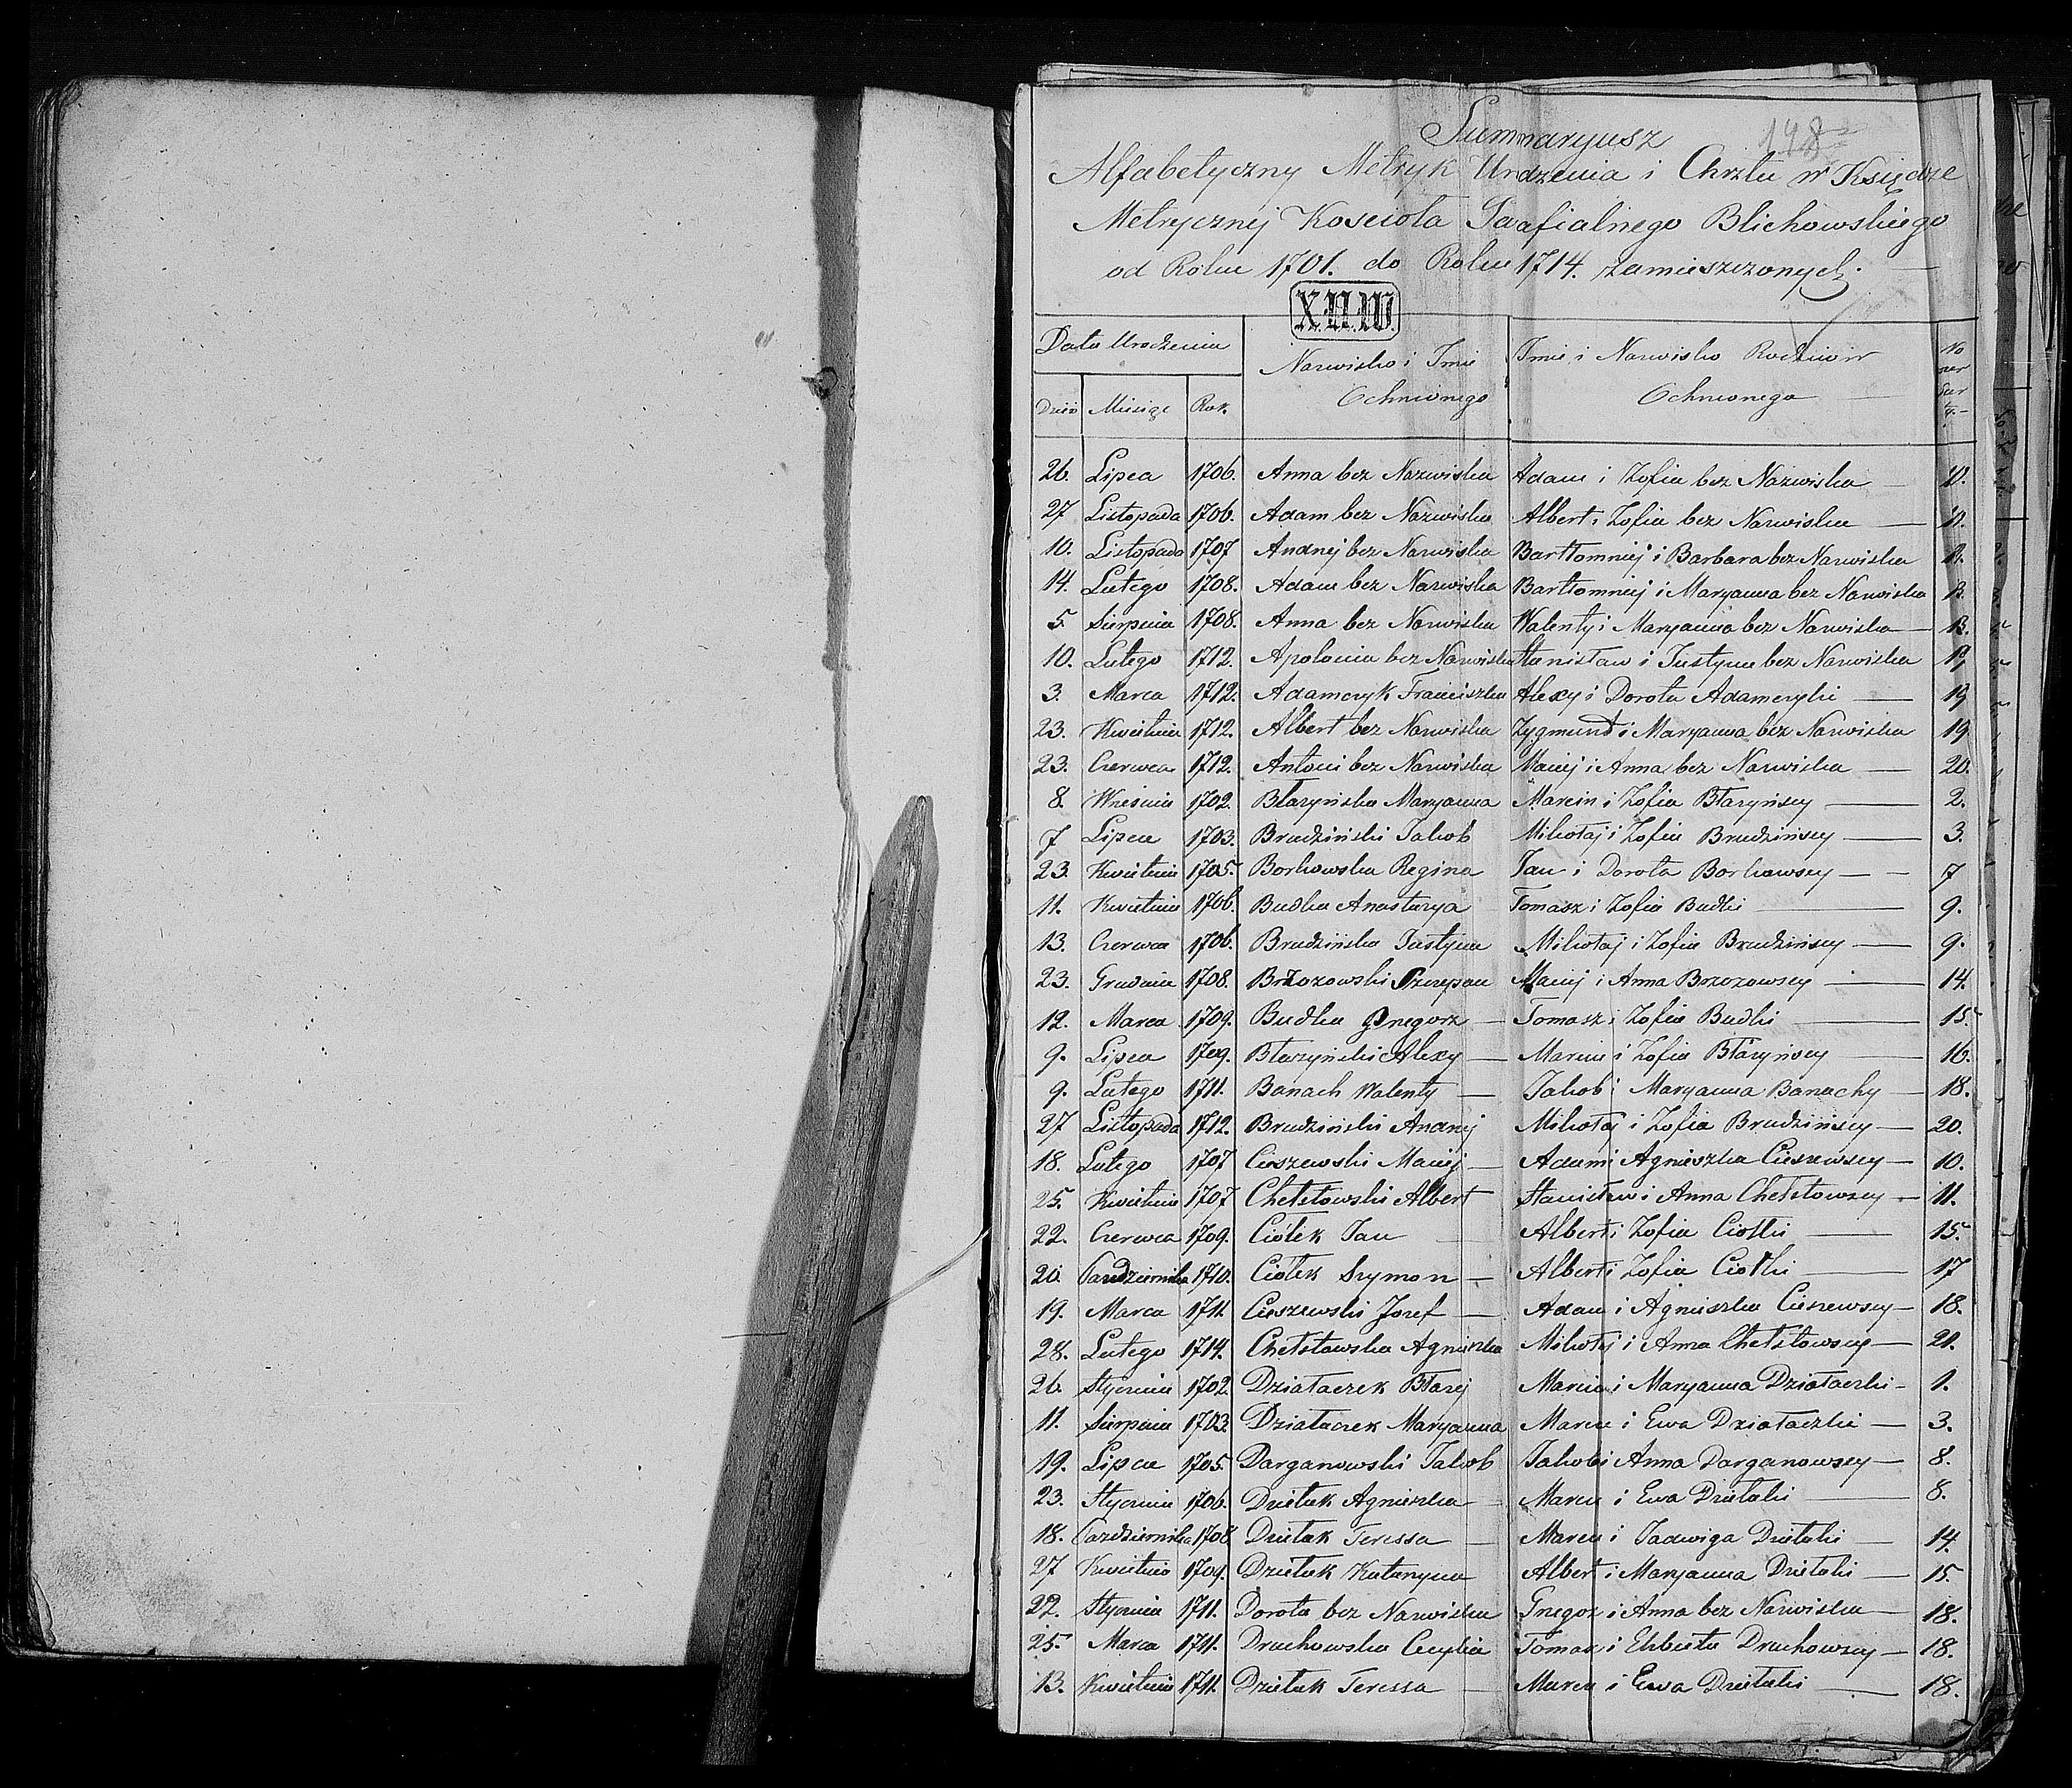 148
Summaryusz
Alfabetyczny Metryk Urdzenia i Chrztu w Księdze
Metrycznej Kościoła Paafialnego Blichowskiego
od Roku 1701. do Roku 1714. zamieszczonych.
X.II.IV.
Data Urodzenia
Nazwisko i Imie Ochrzconego
Imie i Nazwisko Rodziców Ochrzconego
Dzień Miesiąc Rok
26. Lipca 1706. Anna bez Nazwiska Adam i Zofia bez Nazwiska 10.
27 Listopada 1706. Adam bez Nazwiska Albert i Zofia bez Nazwiska
10. Listopada 1707 Andrzej bez Nazwiska Bartłomniej i Barbara bez Nazwiska
14. Lutego 1708. Adam bez Nazwiska Bartłomniej i Maryanna bez Nazwiska 13.
5 Sierpnia 1708. Anna bez Nazwiska Walenty i Maryanna bez Nazwiska 13.
10. Lutego 1712. Apolonia bez Nazwiska Stanisław i Justyna bez Nazwiska 19
3. Marca 1712. Adamczyk Franciszka Alexy i Dorota Adamczyki 19
23. Kwietnia 1712. Albert bez Nazwiska Zygmund i Maryanna bez Nazwiska 19
23. Czerwca 1712. Antoni bez Nazwiska Maciej i Anna bez Nazwiska 20.
8. Września 1702. Błazyńska Maryanna Marcin i Zofia Błazyńscy 2.
7 Lipca 1703. Brudziński Jakob Mikołaj i Zofia Brudzińscy 3.
23. Kwietnia 1705. Borkowska Regina Jan i Dorota Borkowscy 7
11. Kwietnia 1706. Budka Anastazya Tomasz i Zofia Budki 9.
13. Czerwca 1706. Brudzińska Justyna Mikołaj i Zofia Brudzińscy 9.
23. Grudnia 1708. Brzozowski Szczepan Maciej i Anna Brzozowscy 14.
12. Marca 1709. Budka Grzegorz Tomasz i Zofia Budki 15.
9. Lipca 1709. Błazyński Alexy Marcin i Zofia Błazyńscy 16.
9. Lutego 1711. Banach Walenty Jakob i Maryanna Banachy 18.
27 Listopada 1712. Brudziński Andrzej Mikołaj i Zofia Brudzińscy 20.
18. Lutego 1707 Cieszewski Maciej Adam i Agnieszka Cieszewscy 10.
25. Kwietnia 1707. Chełstowski Albert Stanisław i Anna Chełstowscy 11.
22. Czerwca 1709. Ciołek Jan Albert i Zofia Ciołki 15.
20. Pazdziernika 1710. Ciołek Szymon Albert i Zofia Ciołki 17
19. Marca 1711. Cieszewski Jozef Adam i Agnieszka Cieszewscy 18.
28. Lutego 1714. Chełstowska Agnieszka Mikołaj i Anna Chełstowscy 21.
26. Stycznia 1702. Działaczek Błazej Marcin i Maryanna Działaczki 1.
11. Sierpnia 1703. Działaczek Maryanna Marcin i Ewa Działaczki 3.
19. Lipca 1705. Darganowski Jakob Jakob i Anna Darganowscy 8.
23. Stycznia 1706. Dzietak Agnieszka Marcin i Ewa Dzietaki 8.
18. Pazdziernika 1708 Dzietak Teressa Marcin i Jadwiga Dzietaki 14.
27 Kwietnia 1709. Dzietak Katarzyna Albert i Maryanna Dzietaki 15.
22. Stycznia 1711. Dorota bez Nazwiska Grzegoz i Anna bez Nazwiska 18.
25. Marca 1711. Druchowska Cecylia Tomasz i Elzbieta Druchowscy 18.
13. Kwietnia 1711. Dzietak Teressa Marcin i Ewa Dzietaki 18.